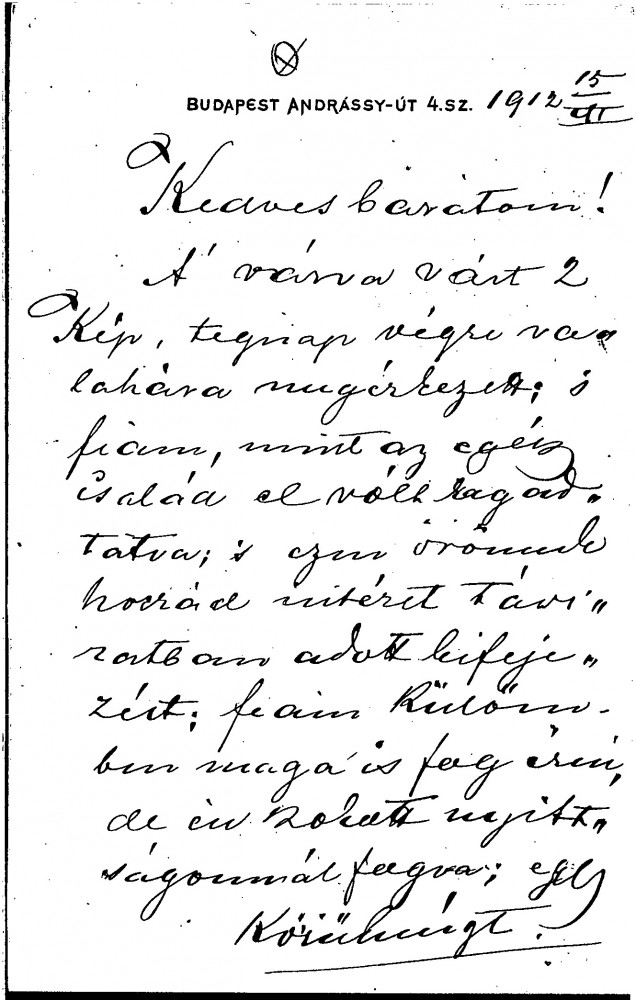 BUDAPEST ANDRÁSSY-ÚT 4.SZ. 1912 15/VI
Kedves barátom!
A' várva várt 2
Kép, tegnap végre va„
lahára megérkezett; s
fiam, mint az egész
család el vólt ragad„
tatva; s ezen örömnek
hozzád intézet távi„
ratban adott kifeje„
zést; fiam Külöm-
ben maga is fog írni,
de én szokott nyílt„
ságomnál fogva; egy
Körülményt.